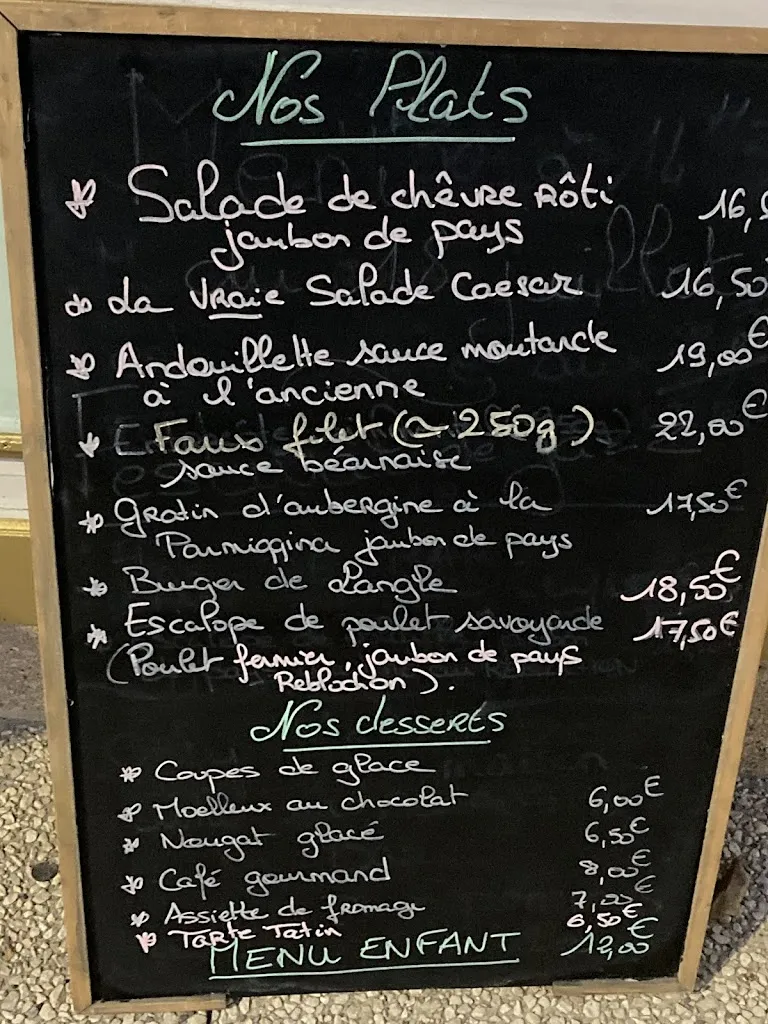 Nos Plats
Salade de chêvre Rôti 16,5
jambon de pays
La VRaie Salade Caesar 16,50
Andouillette sauce moutarde 19,00€
à l'ancienne
Faux filet (≃ 250g) 22,00€
sauce béarnaise
Gratin d'aubergine à la 17,50€
Parmiggina jambon de pays
Burger de L'angle 18,50€
Escalope de poulet savoyarde 17,50€
(Poulet fermier, jambon de pays
Reblochon).
Nos desserts
Coupes de glace
Moelleux au chocolat 6,00€
Nougat glacé 6,50€
Café gourmand 8,00€
Assiette de fromage 7,00€
Tarte Tatin 6,50€
MENU ENFANT 12,00€